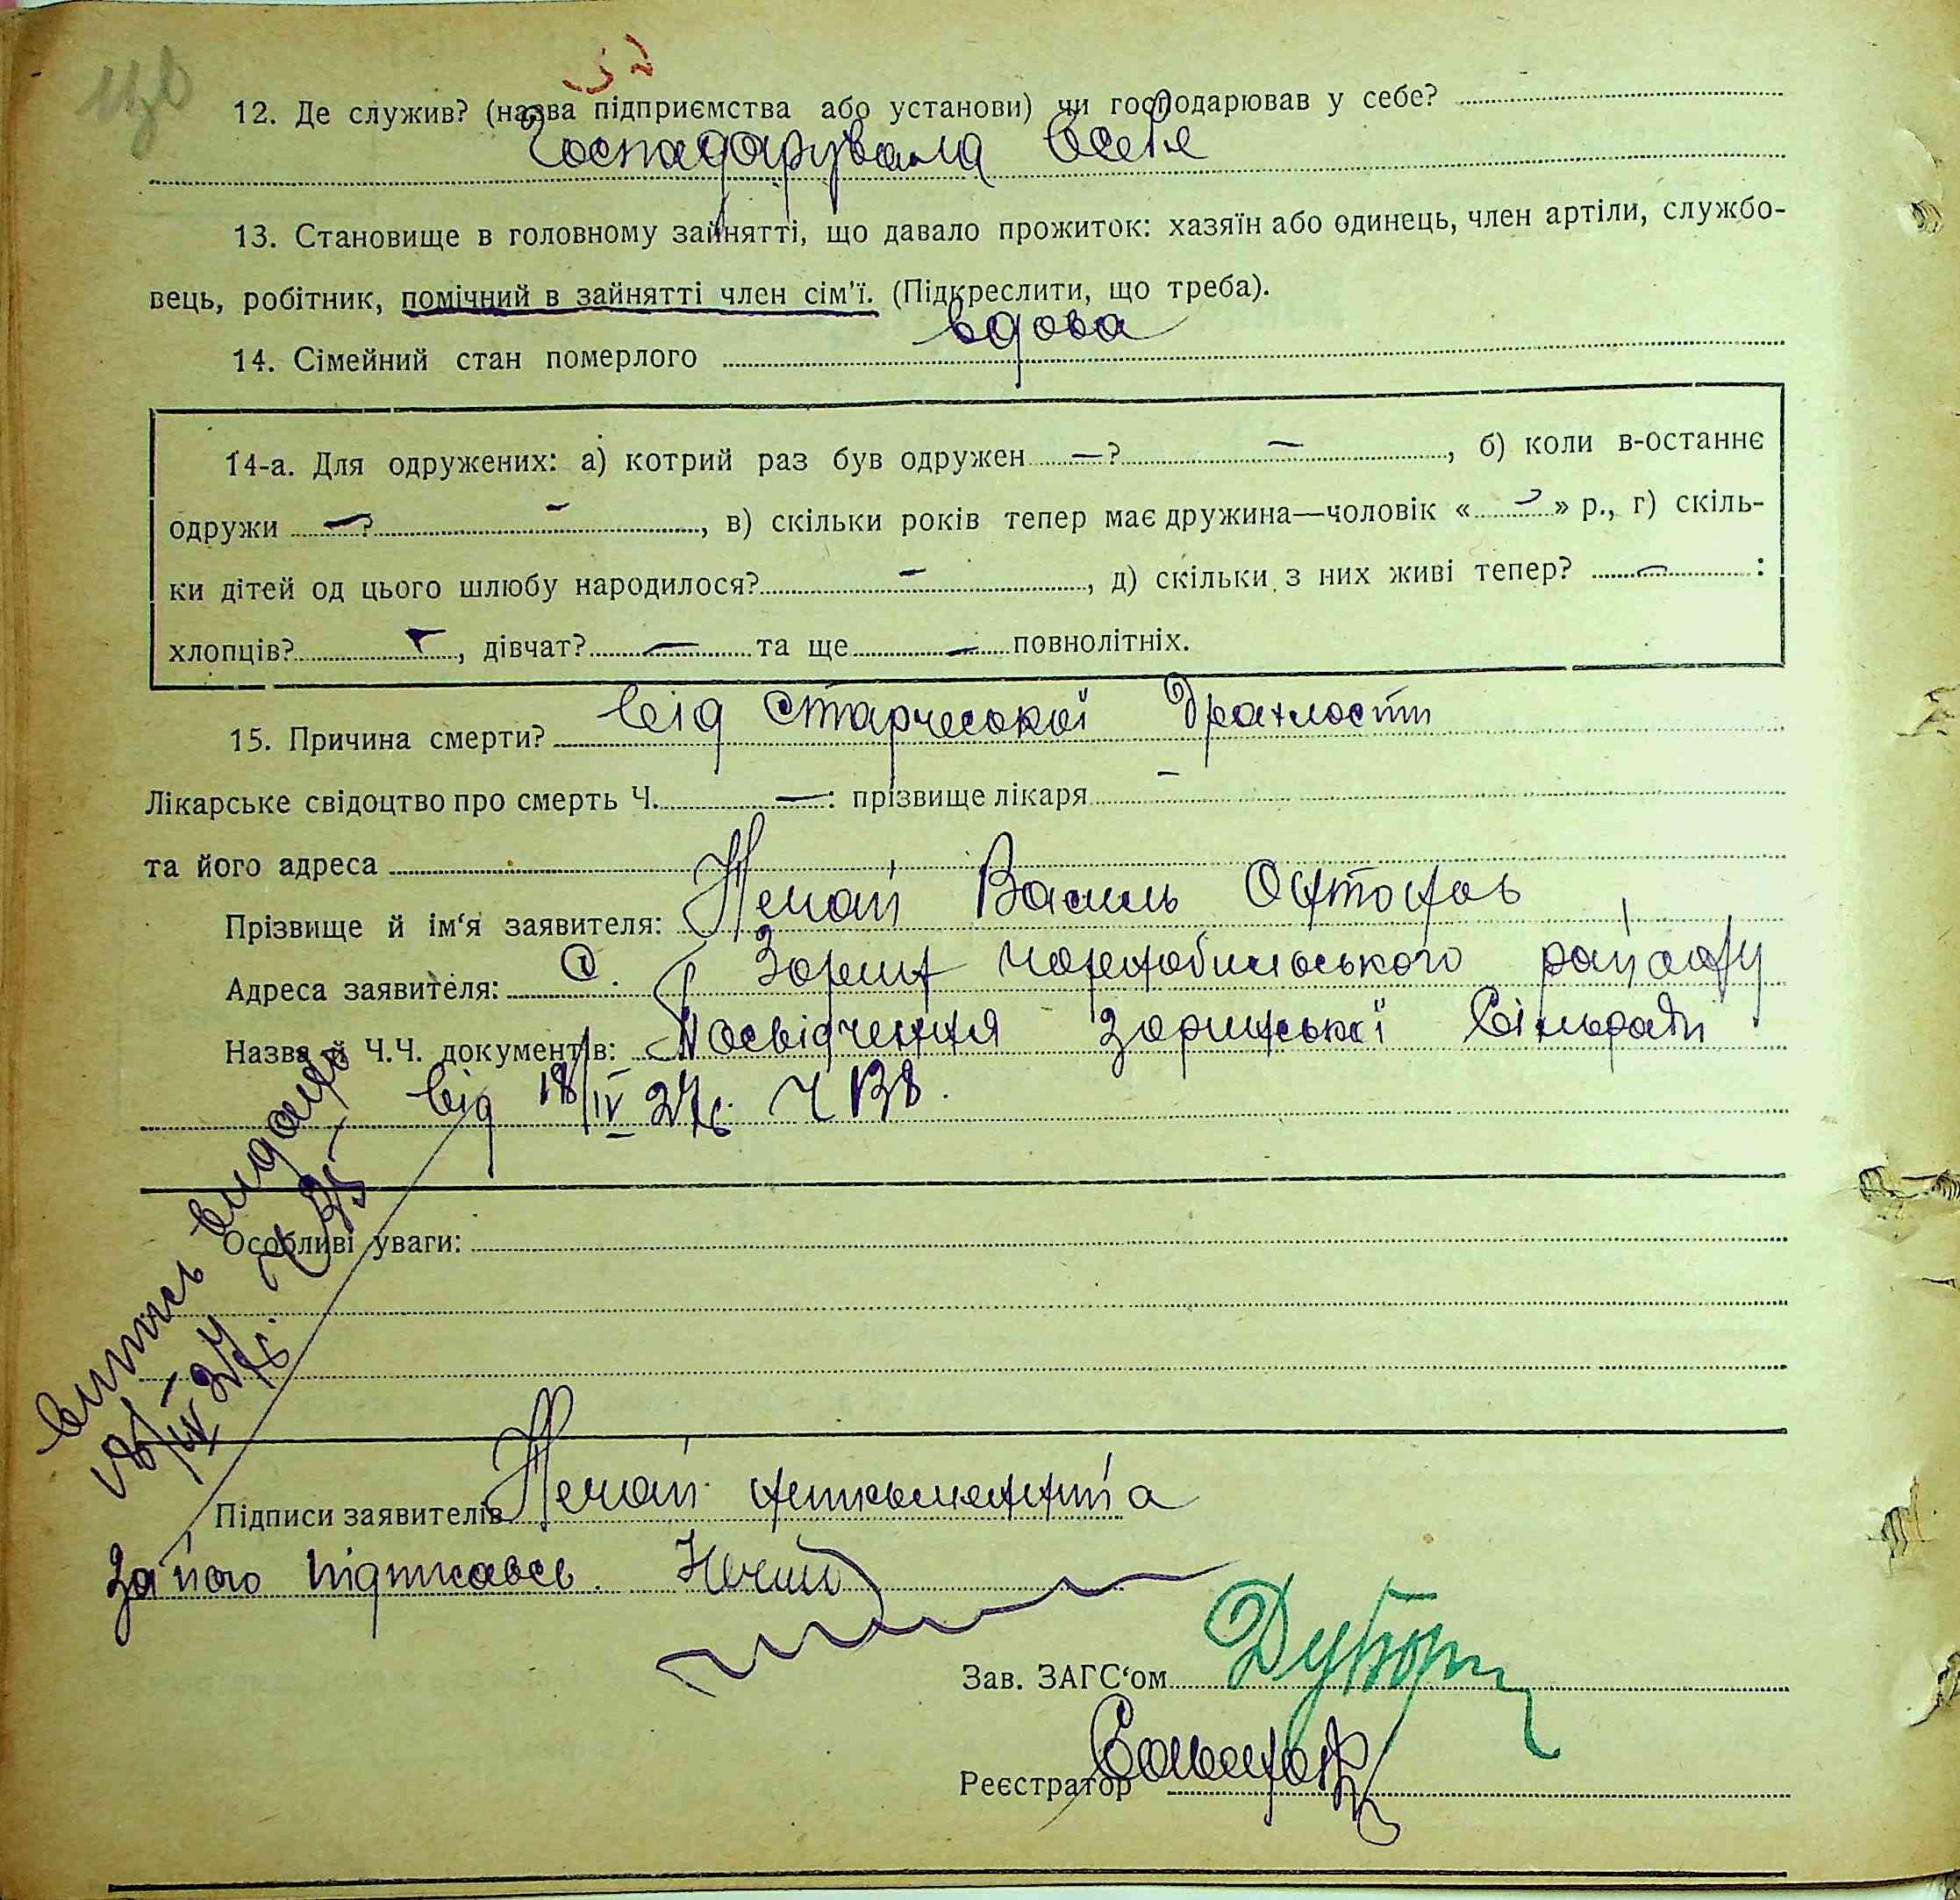 12. Де служив? (назва підприємства або установи) чи господарював у себе?
Господарувала всебе
13. Становище в головному зайнятті, що давало прожиток: хазяїн або одинець, член артіли, службо-
вець, робітник, помічний в зайнятті член сім'ї. (Підкреслити, що треба).
14. Сімейний стан померлого вдова
14-а. Для одружених: а) котрий раз був одружен —? —, б) коли в-останнє
одружи —? —, в) скільки років тепер має дружина—чоловік « — » р., г) скіль-
ки дітей од цього шлюбу народилося? —, д) скільки з них живі тепер? — :
хлопців? —, дівчат? — та ще — повнолітніх.
15. Причина смерти? від старческої драхлости
Лікарське свідоцтво про смерть Ч. — : прізвище лікаря —
та його адреса
Прізвище й ім‘я заявителя: Нечай Василь
Адреса заявителя: Зорин Чорнобильського району
Назва й Ч.Ч. документів: Посвідчення Зоринської Сільради
від 18/IV 27р. Ч 138.
Випись видано
18/IV 27р.
Особливі уваги:
Підписи заявителів Нечай неписьменний а
за його підписався Нечай
Зав. ЗАГС‘ом
Реєстратор